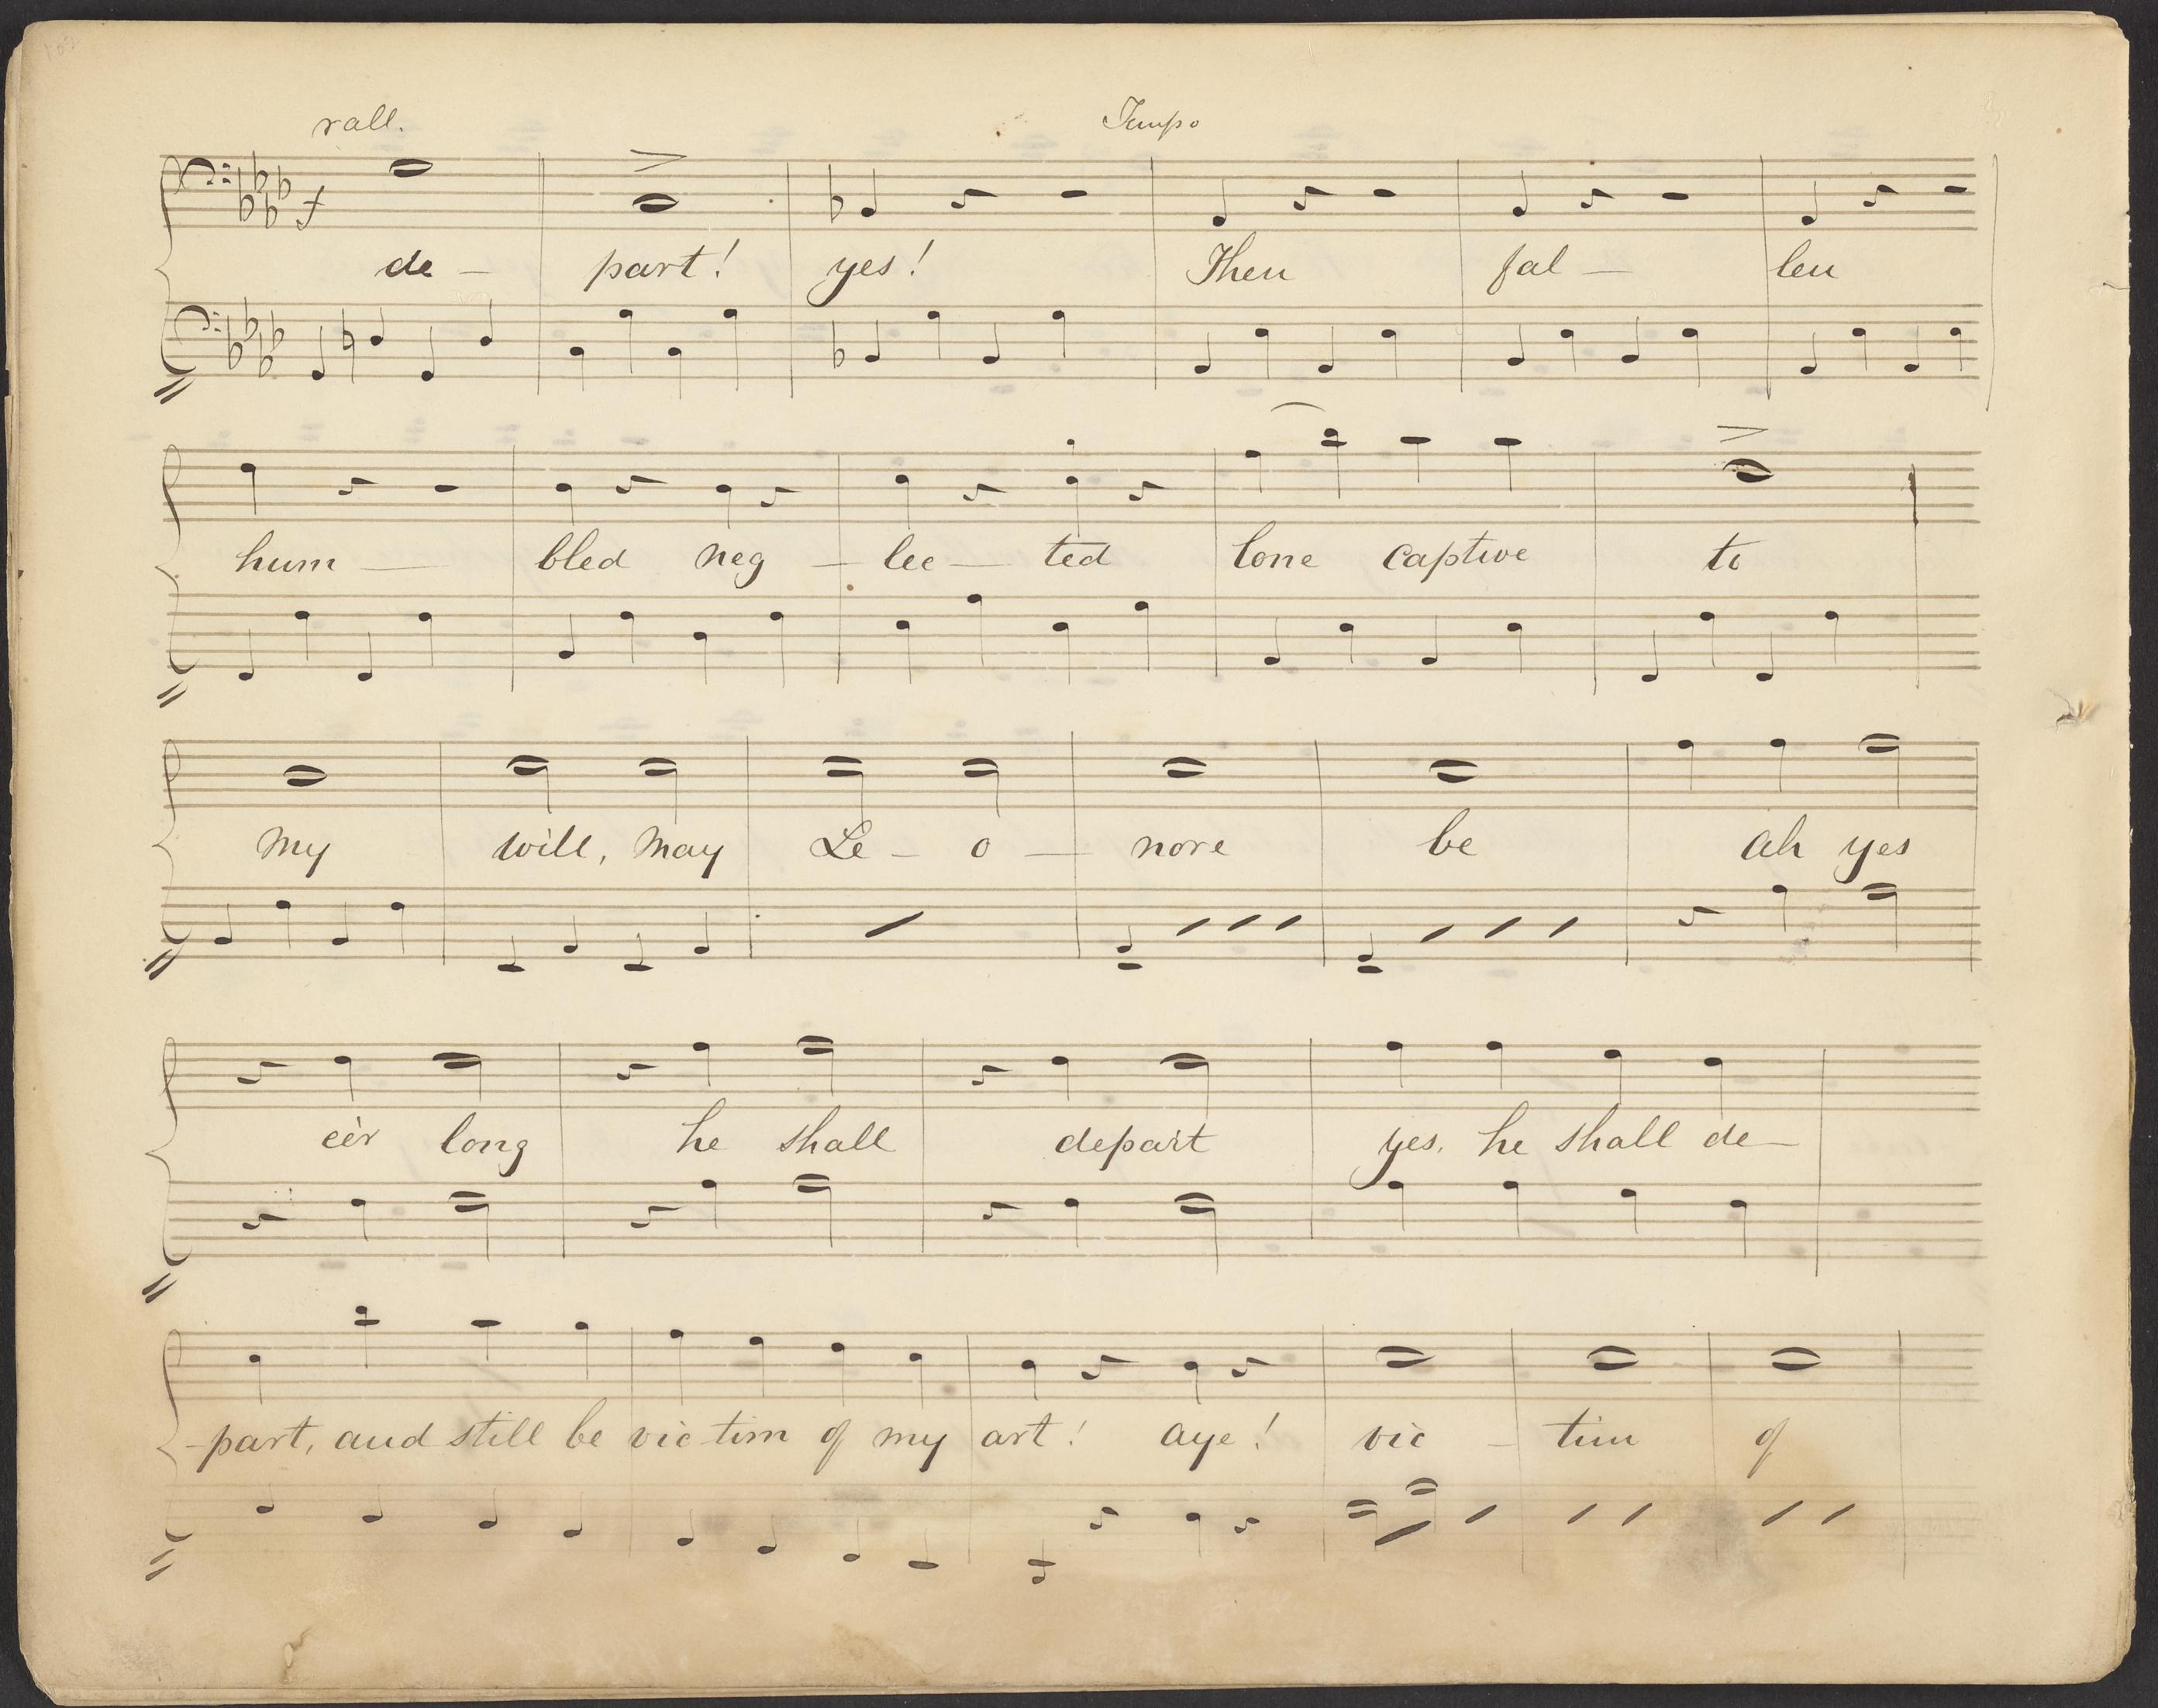 rall. Tempo
f
de – part! yes! Then fal – len
hum – bled neg – lec – ted lone captive to
my will, may Le – o – nore be ah yes
eèr long he shall depart yes, he shall de –
- part, and still be vic-tim of my art! aye! vic – tim of